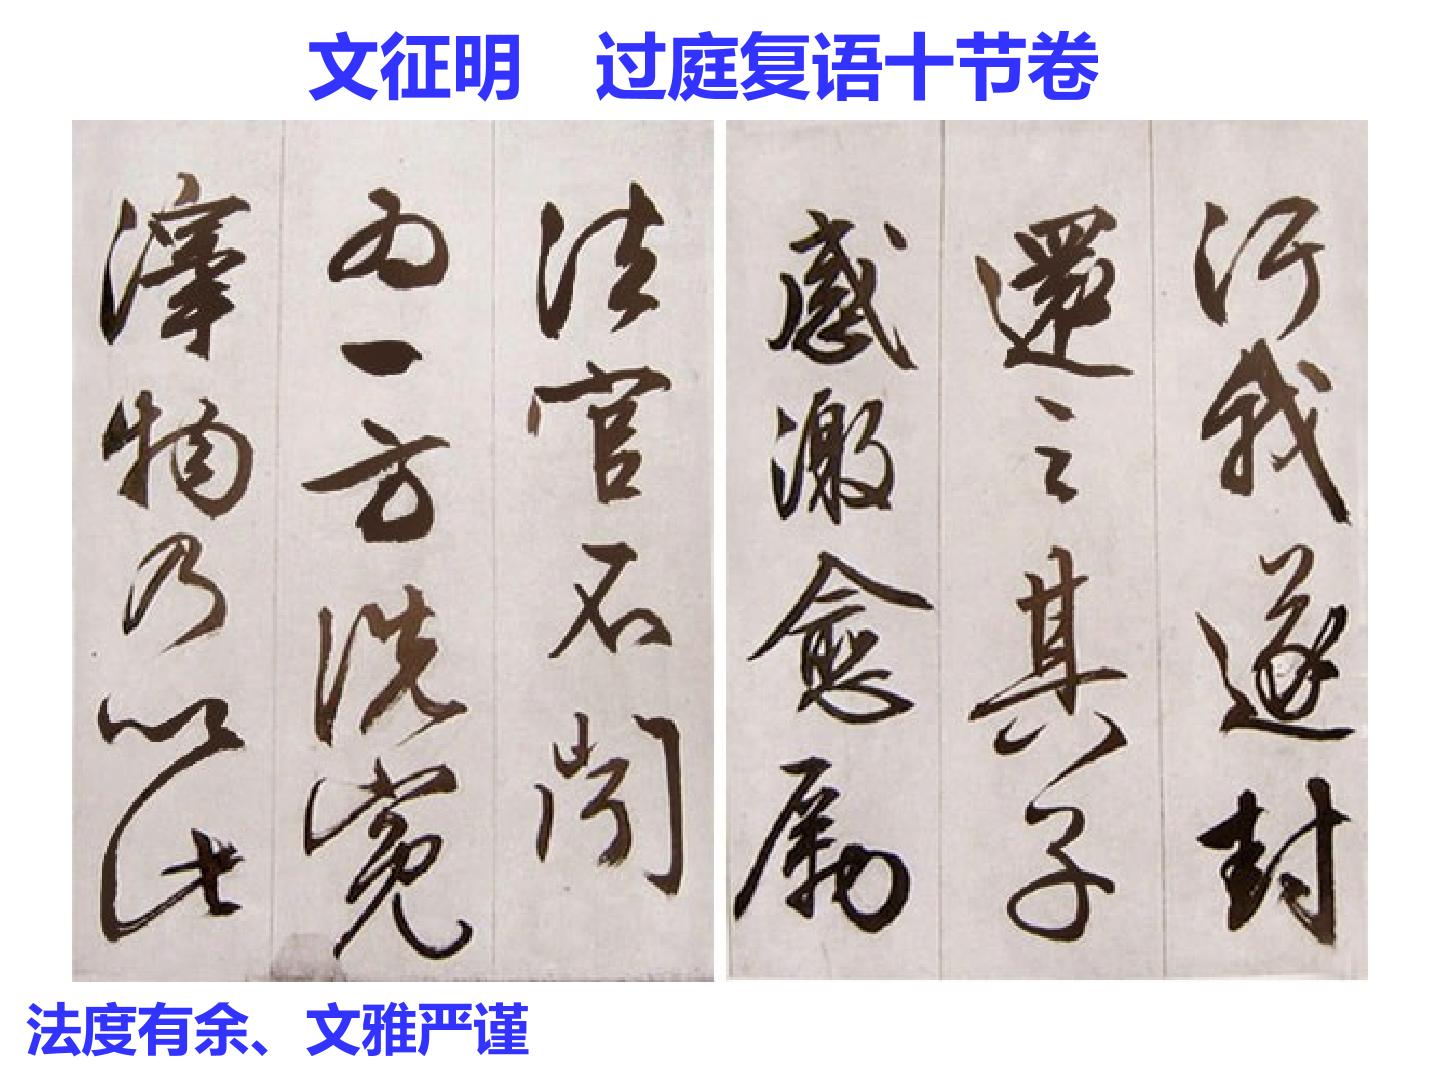 文征明 过庭复语十节卷
法官不聞
為一方洗冤
澤物乃以此
汙我遂封
還之其子
感激愈厲
法度有余、文雅严谨